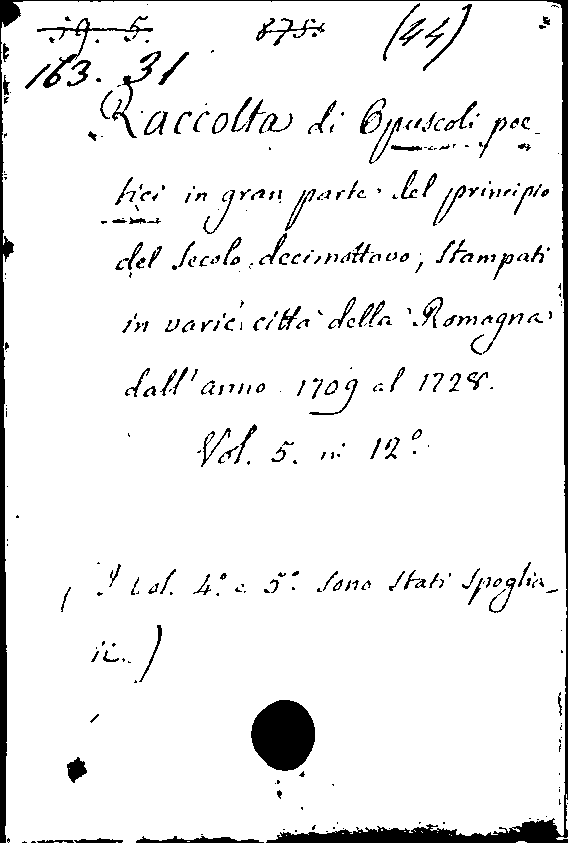 19. 5. 8751 (44)
163. 31
Raccolta di Opuscoli poe-
tici in gran parte del principio
del secolo decimottavo, stampati
in varie città della Romagna
dall' anno 1709 al 1728.
Vol. 5. in 12°.
( I vol. 4.° e 5.° sono stati spoglia-
ti. )